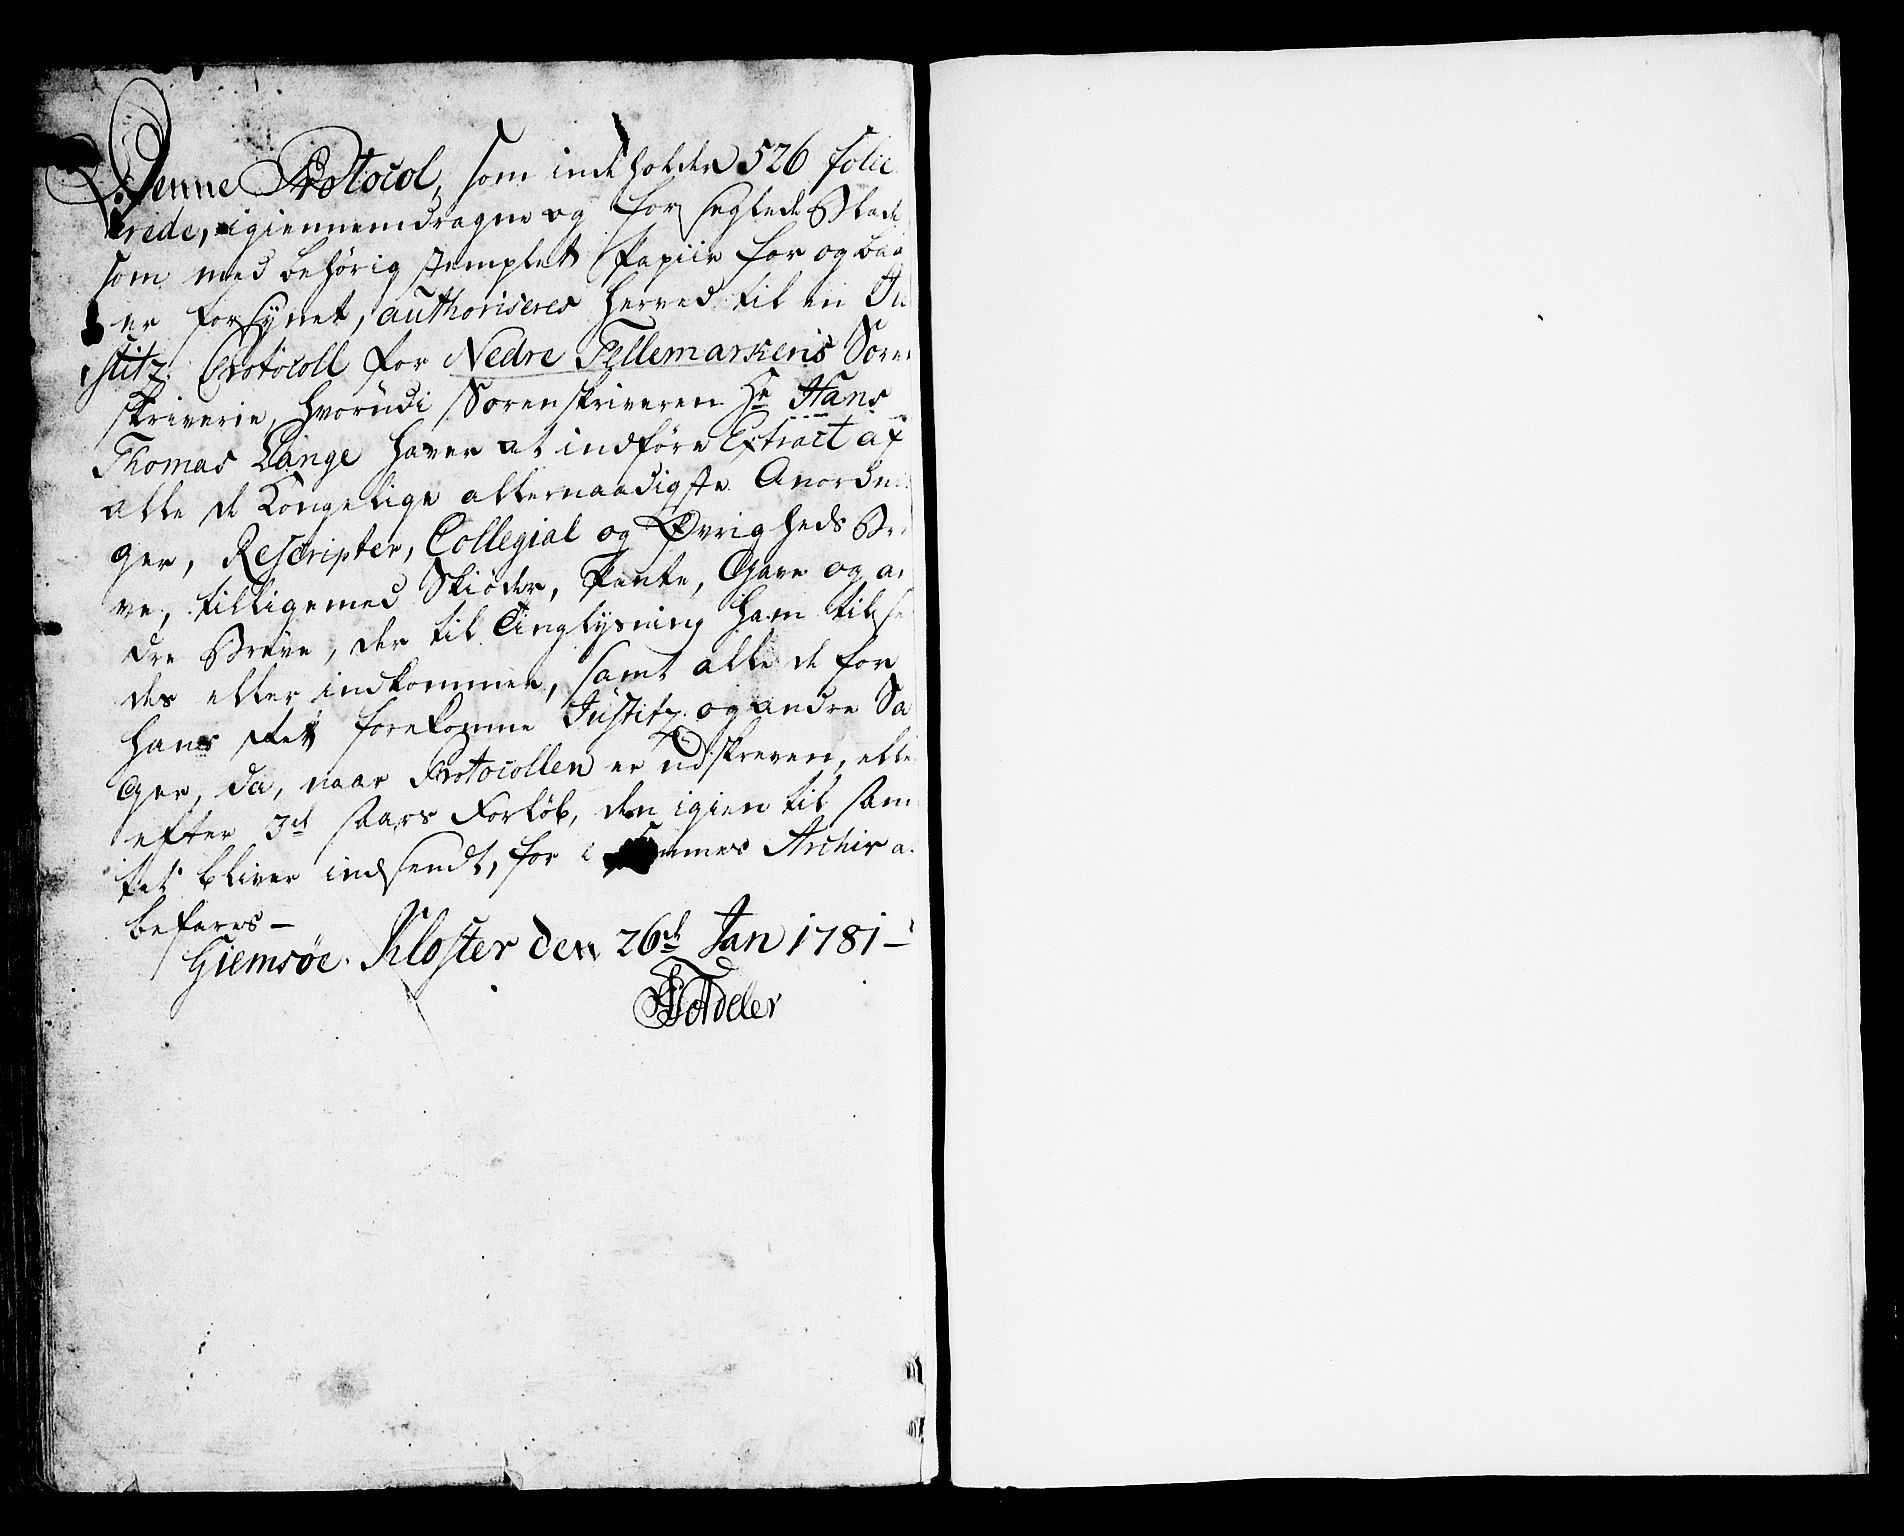 Denne Protocol, som indeholder 526 folie
rede, igiennemdragne og forseglede Blade
som med behörig stemplet Papiir for og bag
er forsynet, authoriseres herved til en Ju
stitz Protocoll for Nedre Tellemarkens Soren
skriverie, hvorudi Sorenskriveren Hr Hans
Thomas Lange haver at indföre Extract af
alle de Kongelige allernaadigste Anordnin
ger, Rescripter, Collegial og Øvrigheds Bre
ve, tilligemed Skiöder, Pante, Gave og an
dre Breve, der til Tinglysning ham tilsen
des eller indkommer, samt alle de for
hans Ret forekomne Justitz og andre Sa
ger, da, naar Protocollen er udskreven, elle
efter 3de Aars Forlöb, den igien til Am
tet bliver indsendt, for i Archiv
befares –
Giemsøe Kloster den 26de Jan 1781 –